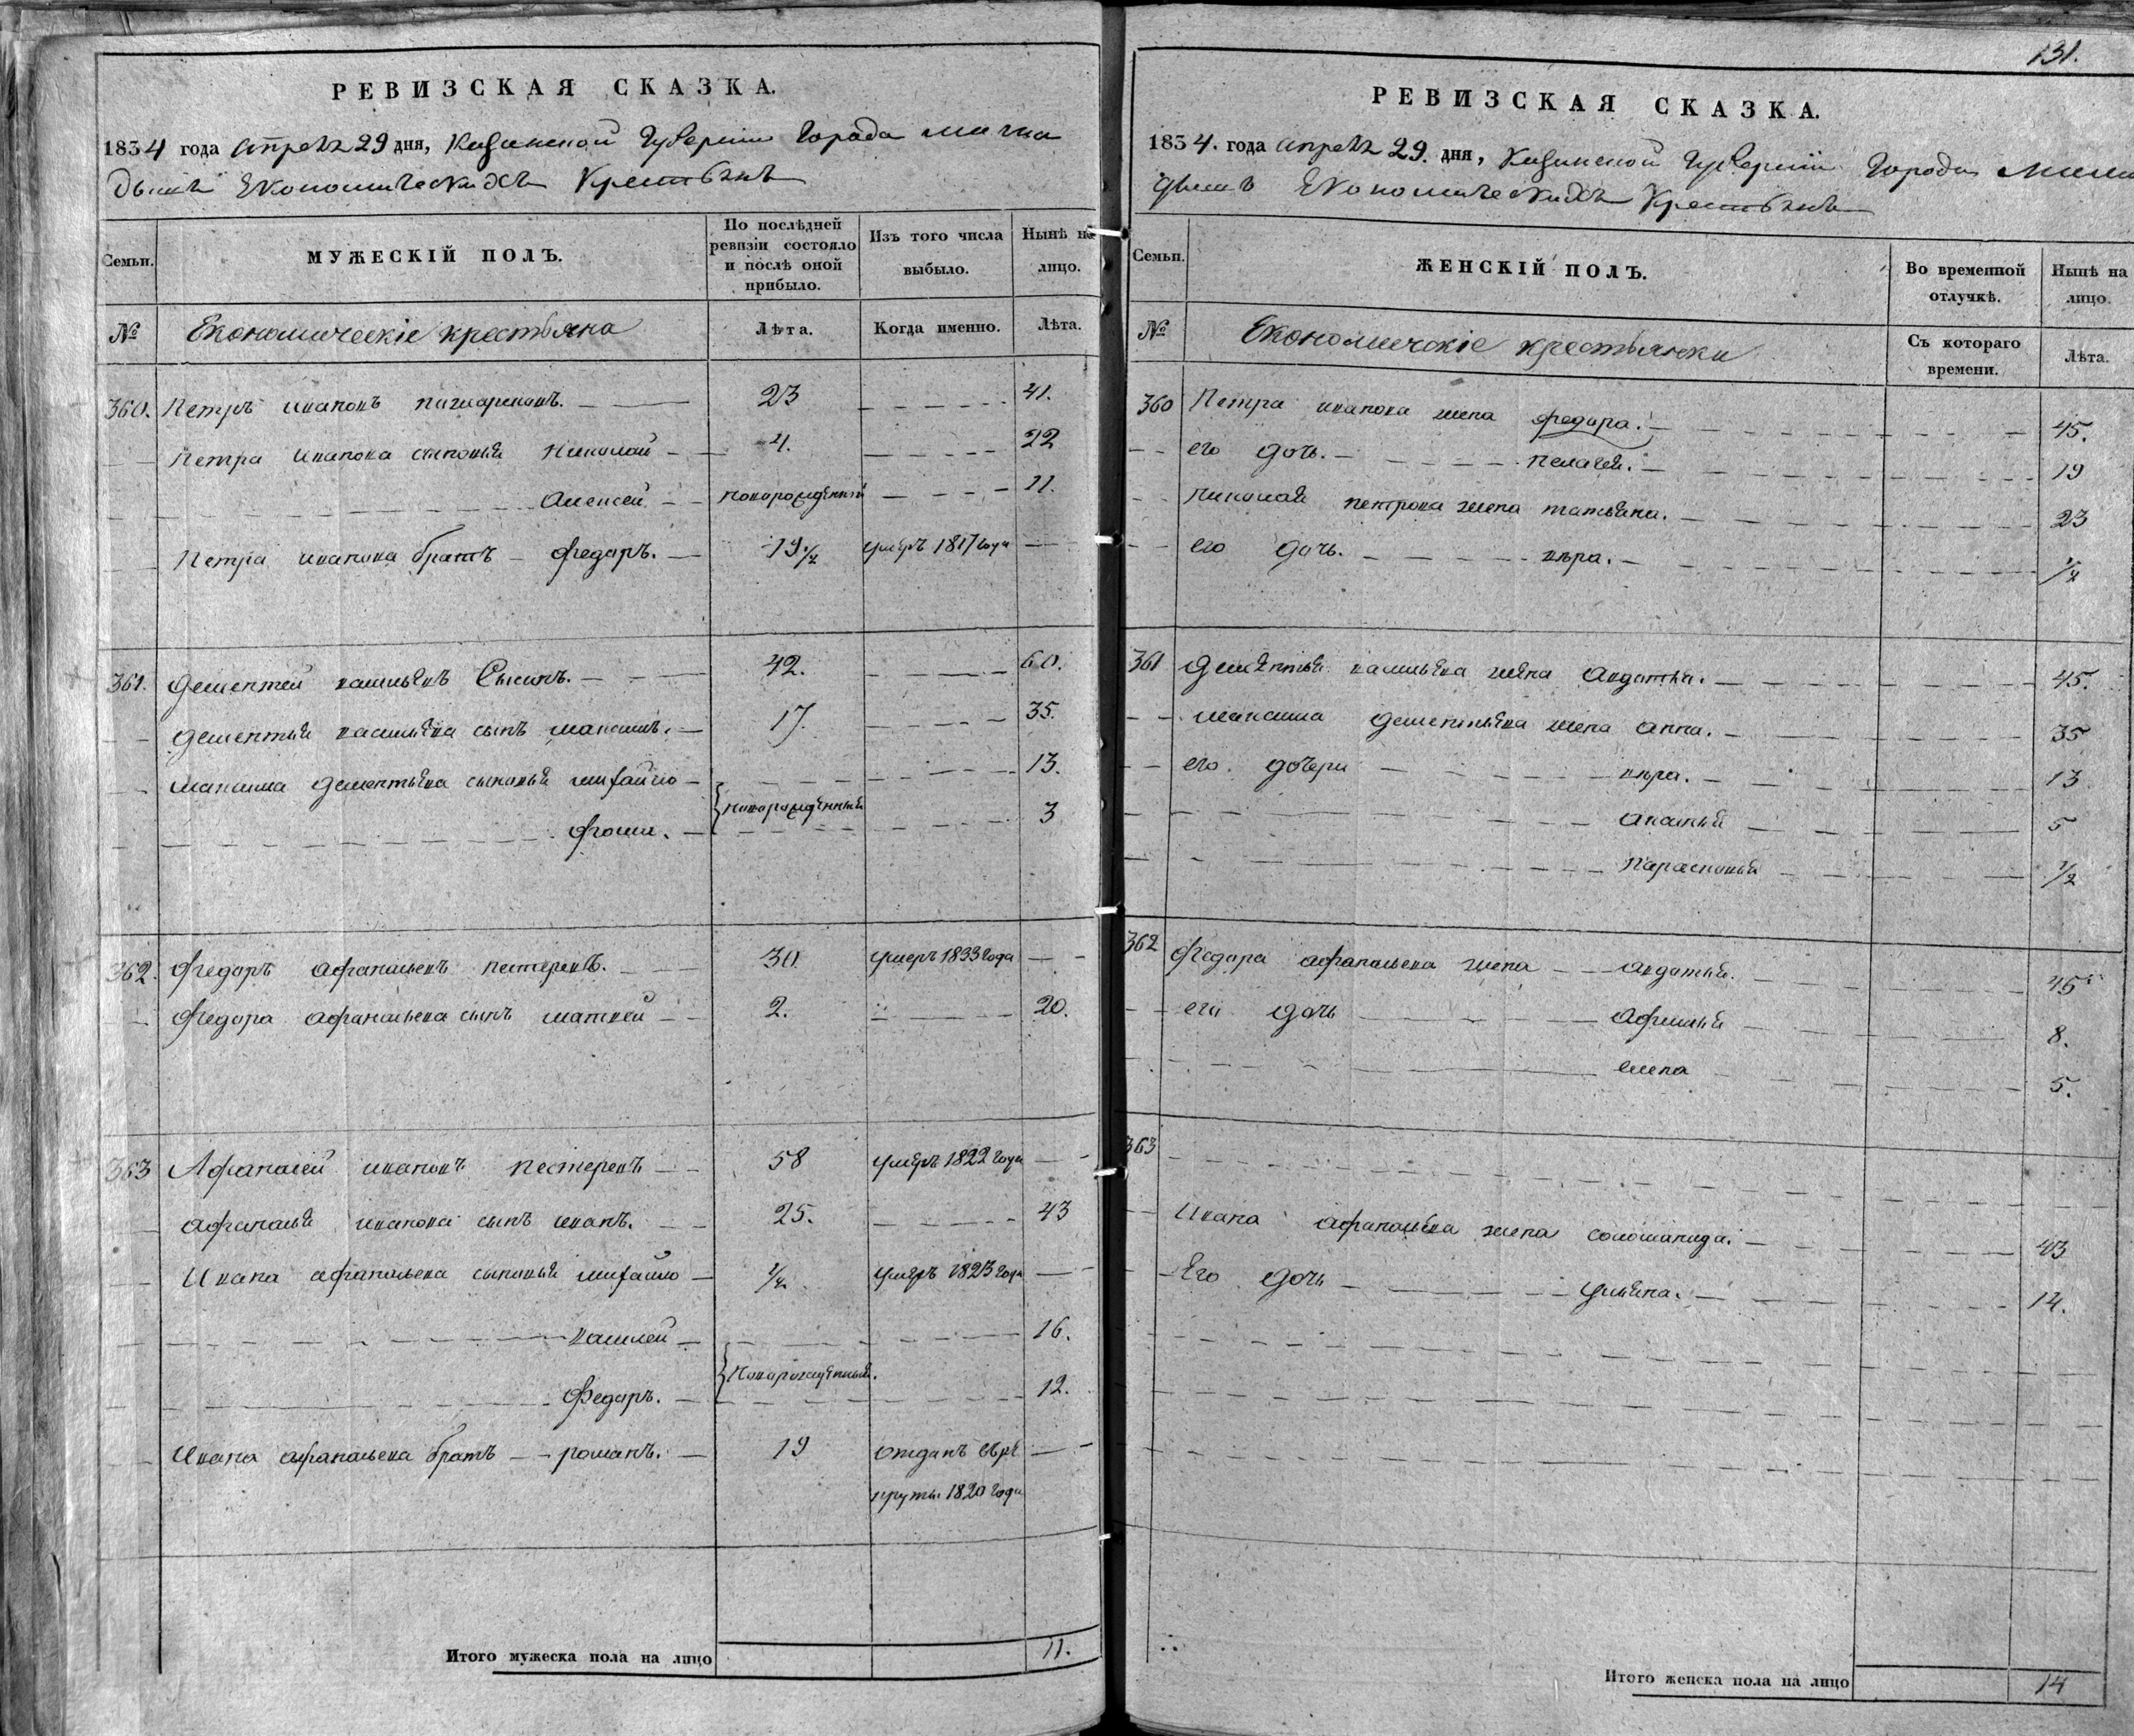 РЕВИЗСКАЯ СКАЗКА.
1834 года апреля 29 дня, Казанской Губернии Города
Економическихъ Крестьянъ
Семьи.
МУЖЕСКІЙ ПОЛЪ.
По послѣдней ревизіи состояло и послѣ оной прибыло.
Изъ того числа выбыло.
Нынѣ на лицо.
№
Економическіе крестьяна
Лѣта.
Когда именно.
Лѣта.
360. Петръ Ивановъ 23 41.
Петра Иванова сыновья Николай 4. 22
Алексей новорожденный 11.
Петра Иванова братъ Федоръ. 19 1/2 умеръ 1817 года
361. Дементей Васильевъ Сысинъ. 42. 60.
Дементья Васильева сынъ Максимъ. 17. 35.
Максима Дементьева сыновья Михайло 13.
новорожденныя
Фома. 3
362. Федоръ Афанасьевъ Пестеревъ. 30. умеръ 1833 года
Федора Афанасьева сынъ Матвей 2. 20.
363 Афанасей Ивановъ Пестеревъ 58 умеръ 1822 года
Афанасья Иванова сынъ Иванъ. 25. 43
Ивана Афанасьева сыновья Михайло умеръ 1823 года
Василей 16.
Новорожденныя.
Федоръ. 12.
Ивана Афанасьева братъ Романъ. 19 отданъ въ рекруты 1820 года
Итого мужеска пола на лицо 11.
131.
РЕВИЗСКАЯ СКАЗКА.
1834. года апреля 29. дня, Казанской Губернии Города
Економическихъ Крестьянъ
Семьи.
ЖЕНСКІЙ ПОЛЪ.
Во временной отлучкѣ.
Нынѣ на лицо.
№
Економическіе крестьянки
Съ котораго времени.
Лѣта.
360 Петра Иванова жена Федора. 45.
его дочь. Пелагея. 19
Николая Петрова жена Татьяна. 23
его дочь. Вера.
361 Дементья Васильева жена Авдотья. 45.
Максима Дементьева жена Анна. 35
его дочери Вера. 13
5
Парасковья 1/2
362 Федора Афанасьева жена Авдотья. 45
его дочь Афимья 8.
5.
363
Ивана Афанасьева жена Соломанида. 43
Его дочь Ульяна. 14.
Итого женска пола на лицо 14